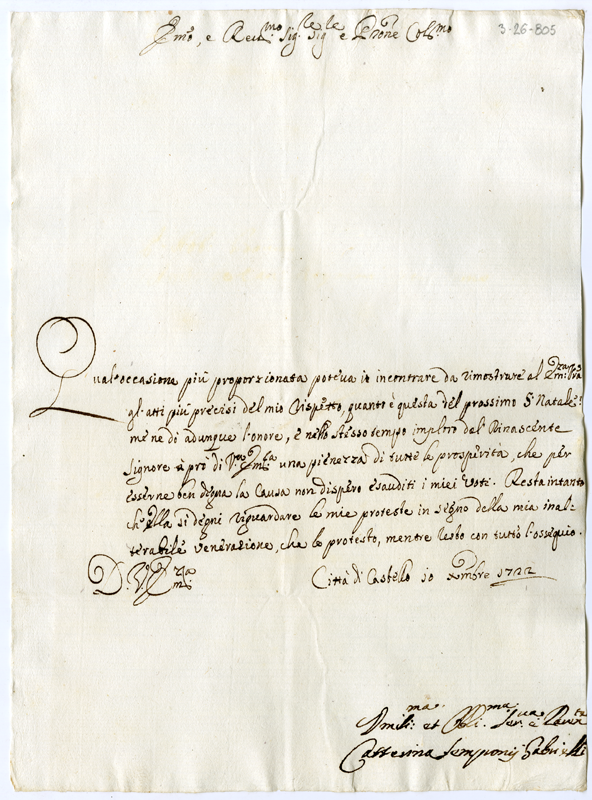 3-26-805
E.mo, e Reu.mo Sig.le Sig.le e Prōne Col.mo
Qual'occasione più proporzionata poteva io incontrare da rimostrare al
gl'atti più precisi del mio rispetto, quanto è questa del prossimo S. Natale:
me ne dò adunque l'onore, e nello stesso tempo imploro del Rinascente
Signore à prò di V.ra Em.za una pienezza di tutte le prosperità, che per
esserne ben degna la Causa non dispero esauditi i miei voti. Resta intanto
ch'ella si degni riguardare le mie proteste in segno della mia inal=
terabile venerazione, che le protesto, mentre resto con tutto l'ossequio.
D. V. Em.za
Città di Castello 10 Xmbre 1722
Vmil.ma et Obli.ma Ser.
Catterina Semponij Gabrielli